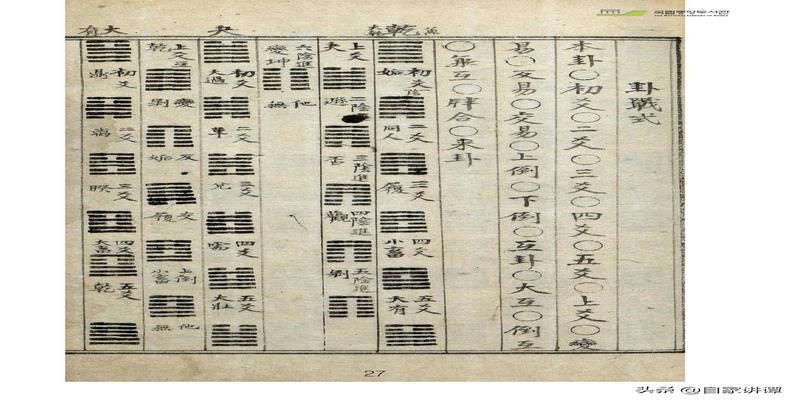 국립중앙도서관
THE NATIONAL LIBRARY OF KOREA
卦戱式
本卦○初爻○二爻○三爻○四爻○五爻○上爻○變
易○反易○交易○上倒○下倒○互卦○大互○倒互
○兼互○牉合○來卦
乾
初爻 姤 二爻 同人 三爻 履 四爻 小畜 五爻 大有
上爻 夬 二陰進 遯 三陰進 否 四陰進 觀 五陰進 剝
六陰進 變坤 他無
夬
初爻 大過 二爻 革 三爻 兌 四爻 需 五爻 大壯
上爻 乾 變 剝 反 姤 交 履 上倒 小畜 他無
大有
初爻 鼎 二爻 离 三爻 睽 四爻 大畜 五爻 乾
27
头条 @自家讲谭